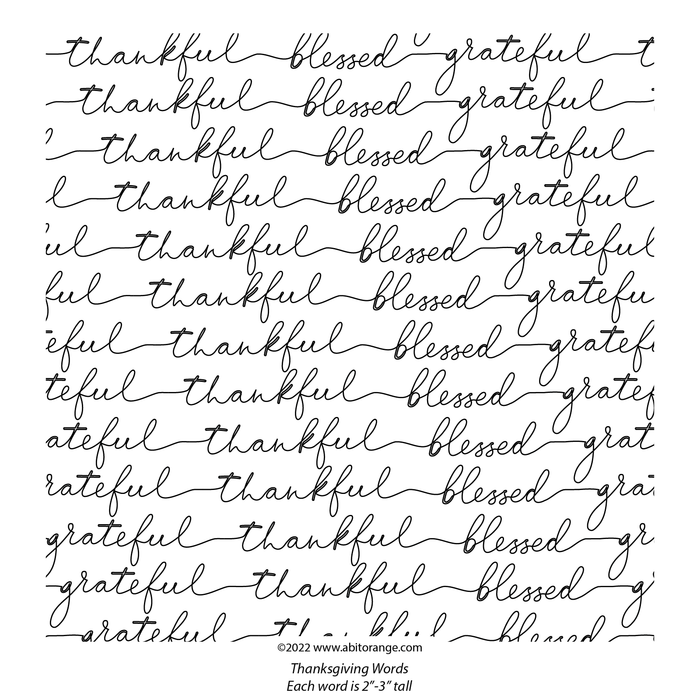 thankful blessed grateful t
thankful blessed grateful
l thankful blessed grateful
l thankful blessed grateful
ul thankful blessed grateful
ful thankful blessed gratefu
eful thankful blessed gratef
teful thankful blessed gratef
ateful thankful blessed grat
rateful thankful blessed grat
grateful thankful blessed gr
grateful thankful blessed g
grateful thankful blessed
©2022 www.abitorange.com
Thanksgiving Words
Each word is 2”-3” tall